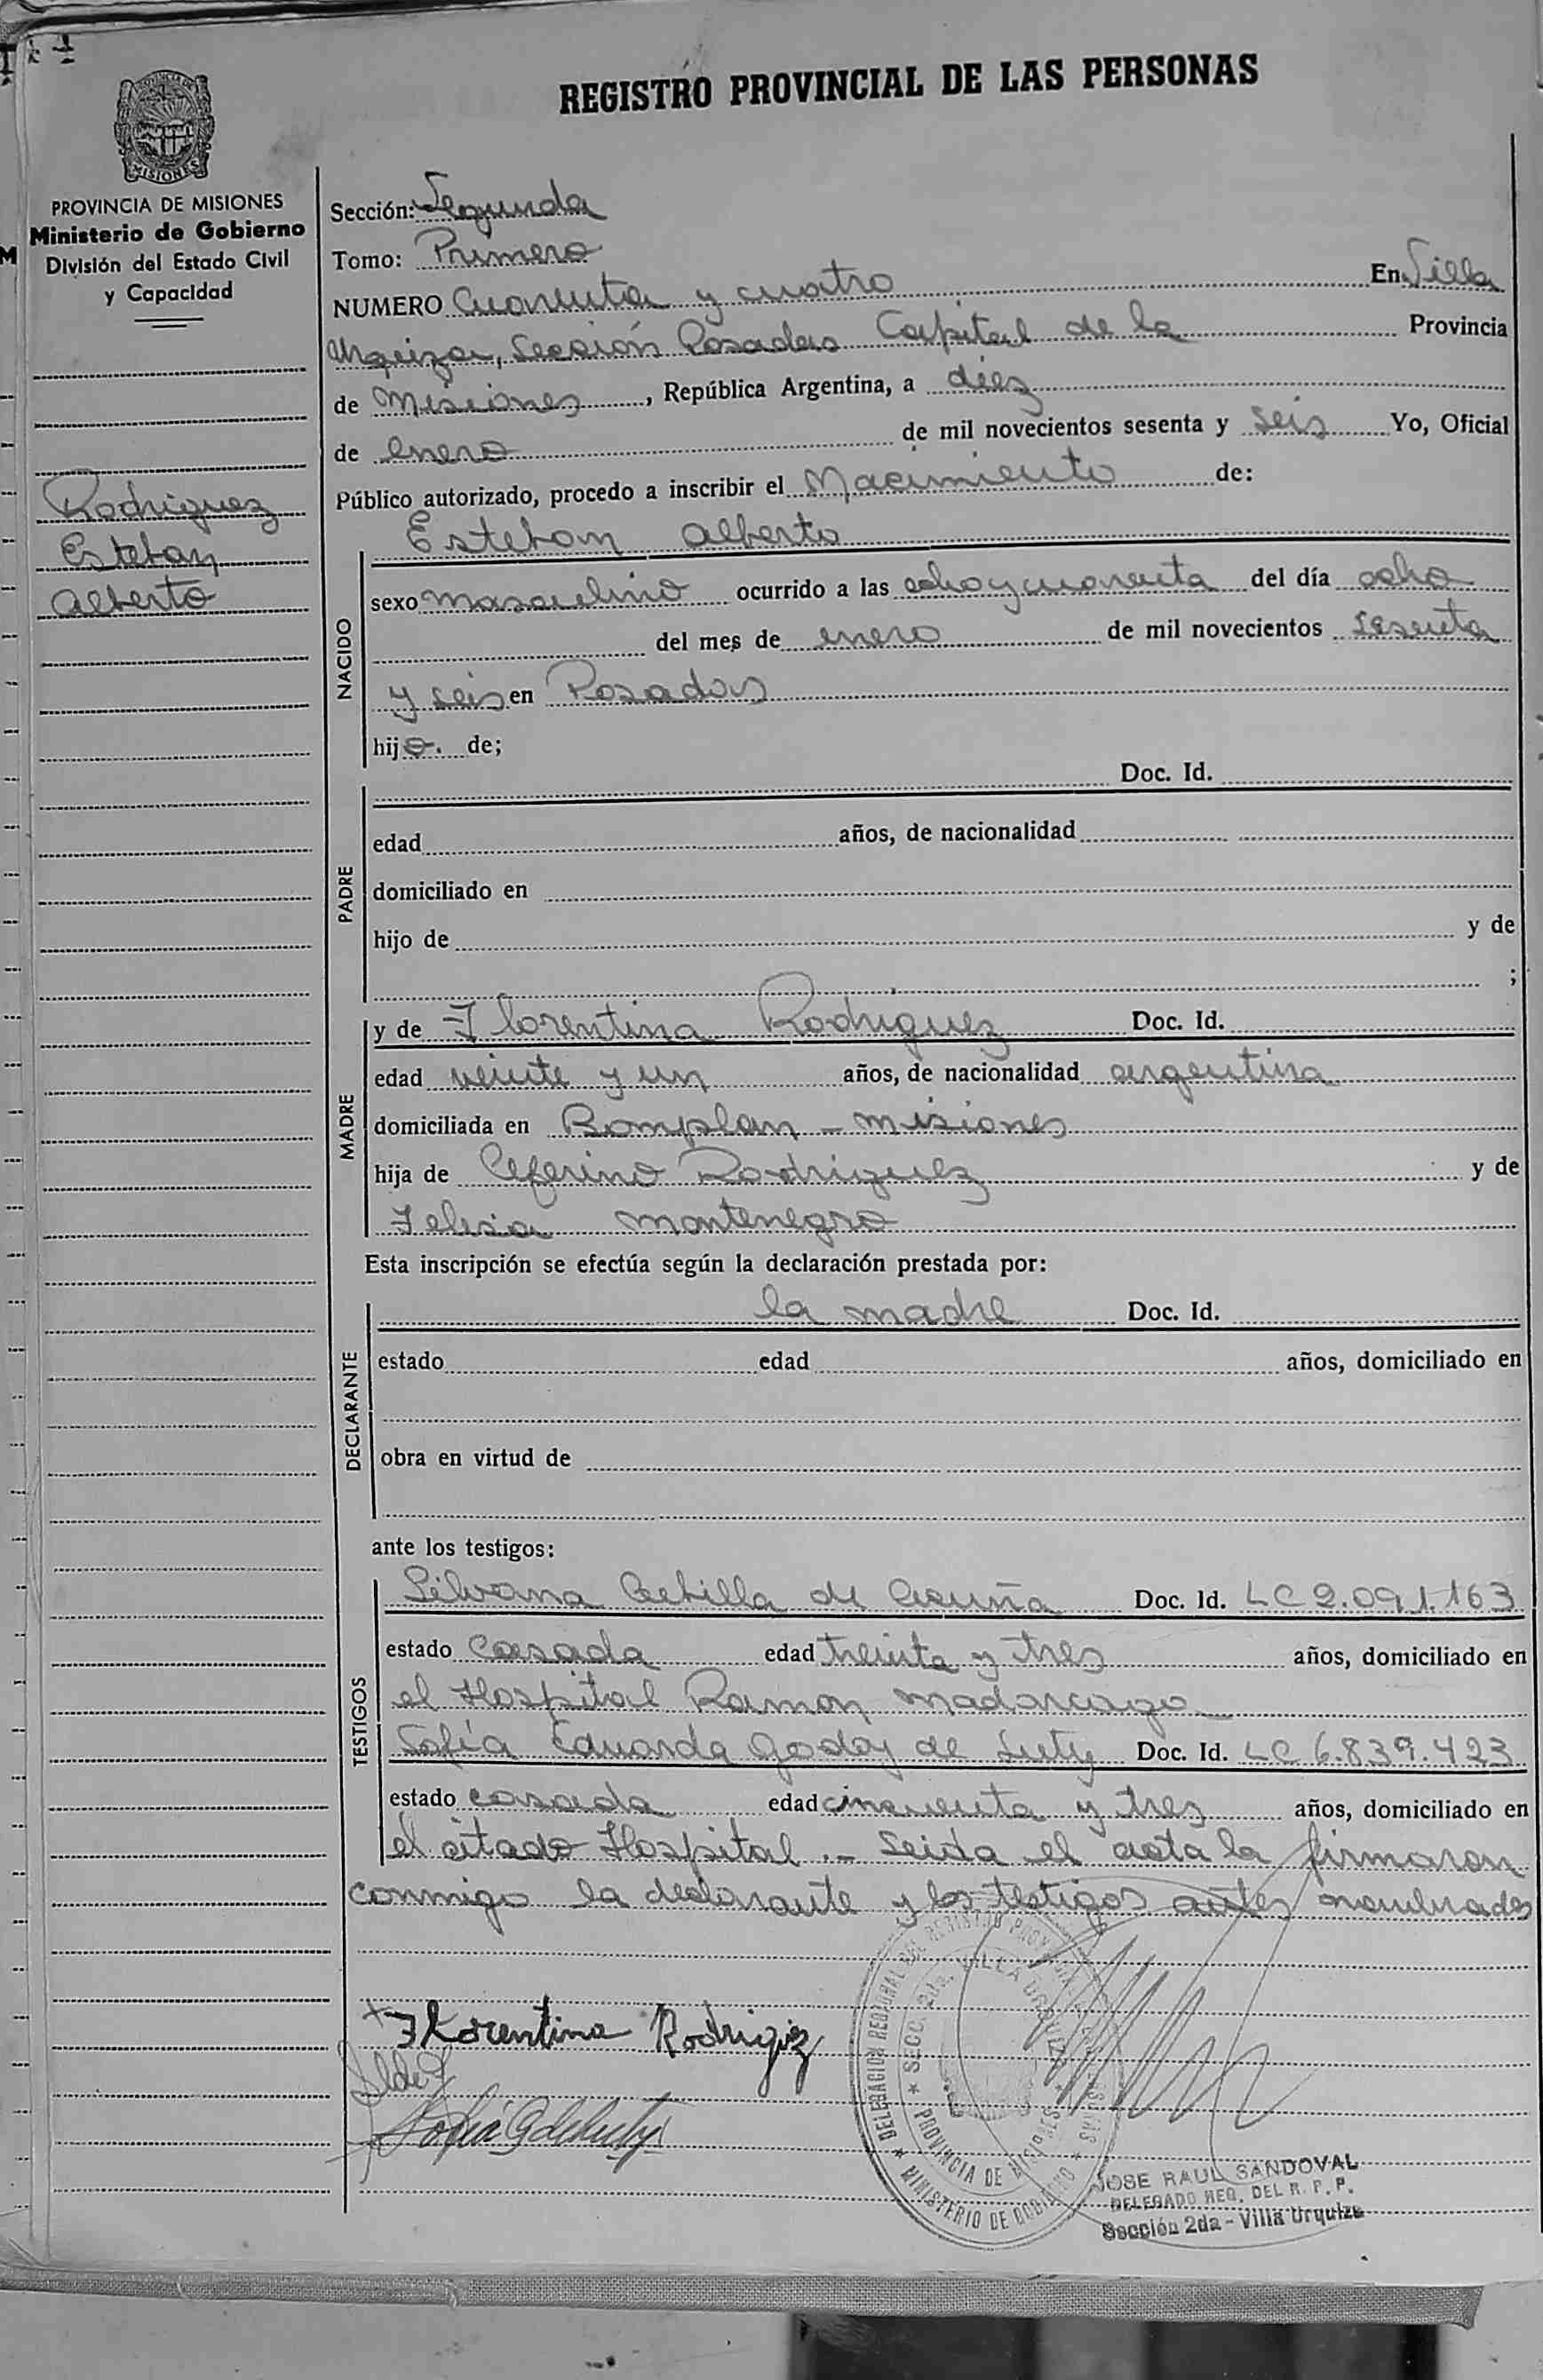 REGISTRO PROVINCIAL DE LAS PERSONAS
MISIONES
PROVINCIA DE MISIONES
Ministerio de Gobierno
División del Estado Civil
y Capacidad
Rodriguez
Esteban
Alberto
Sección: Segunda
Tomo: Primero
NUMERO Cuarenta y cuatro En Villa
Urquiza, Sección Posadas Capital de la Provincia
de Misiones, República Argentina, a diez
de enero de mil novecientos sesenta y seis Yo, Oficial
Público autorizado, procedo a inscribir el Nacimiento de:
Esteban Alberto
NACIDO
sexo masculino ocurrido a las ocho y cuarenta del día ocho
del mes de enero de mil novecientos sesenta
y seis en Posadas
hijo. de;
Doc. Id.
PADRE
edad años, de nacionalidad
domiciliado en
hijo de y de
;
MADRE
y de Florentina Rodriguez Doc. Id.
edad veinte y un años, de nacionalidad argentina
domiciliada en Bomplan - misiones
hija de Ceferino Rodriguez y de
montenegro
Esta inscripción se efectúa según la declaración prestada por:
DECLARANTE
la madre Doc. Id.
estado edad años, domiciliado en
obra en virtud de
ante los testigos:
TESTIGOS
Silvana de Acuña Doc. Id. LC 2.091.163
estado casada edad treinta y tres años, domiciliado en
el Hospital Ramon madariaga
Sofía Eduarda Godoy de Doc. Id. LC 6.839.423
estado casada edad cincuenta y tres años, domiciliado en
el citado Hospital .- Leida el acta la firmaron
conmigo la declarante y los testigos antes nombrados
Florentina Rodrigiz
DELEGACION REGIONAL DEL REGISTRO PROVINCIAL DE LAS PERSONAS
MINISTERIO DE GOBIERNO
SECC. 2da. VILLA URQUIZA
PROVINCIA DE MISIONES
JOSE RAUL SANDOVAL
DELEGADO REG. DEL R. P. P.
Sección 2da - Villa Urquiza